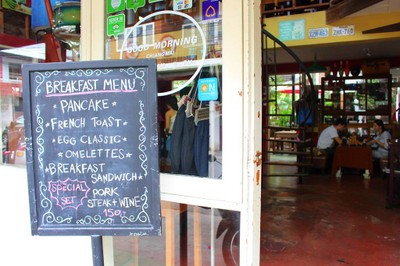 GOOD MORNING
CHIANGMAI
BREAKFAST MENU
*PANCAKE*
*FRENCH TOAST*
*EGG CLASSIC*
*OMELETTES*
*BREAKFAST
SANDWICH*
SPECIAL
SET
PORK
STEAK+WINE
150.-